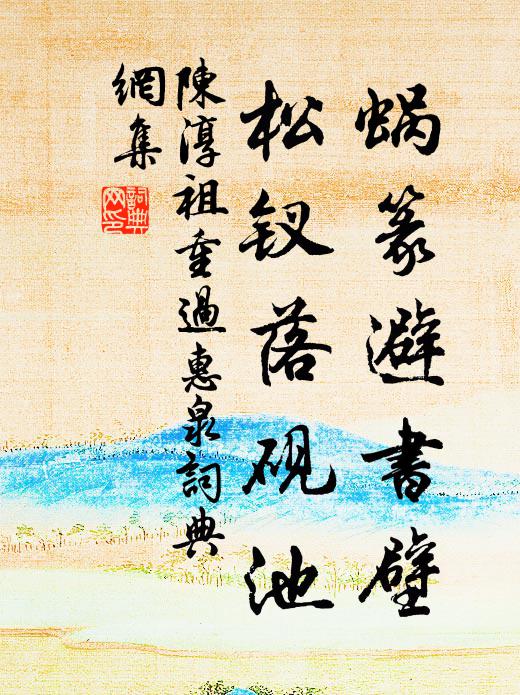 蜗篆避書壁
松钗落砚池
陳淳祖重過惠泉詞典
網集
詞典
网印